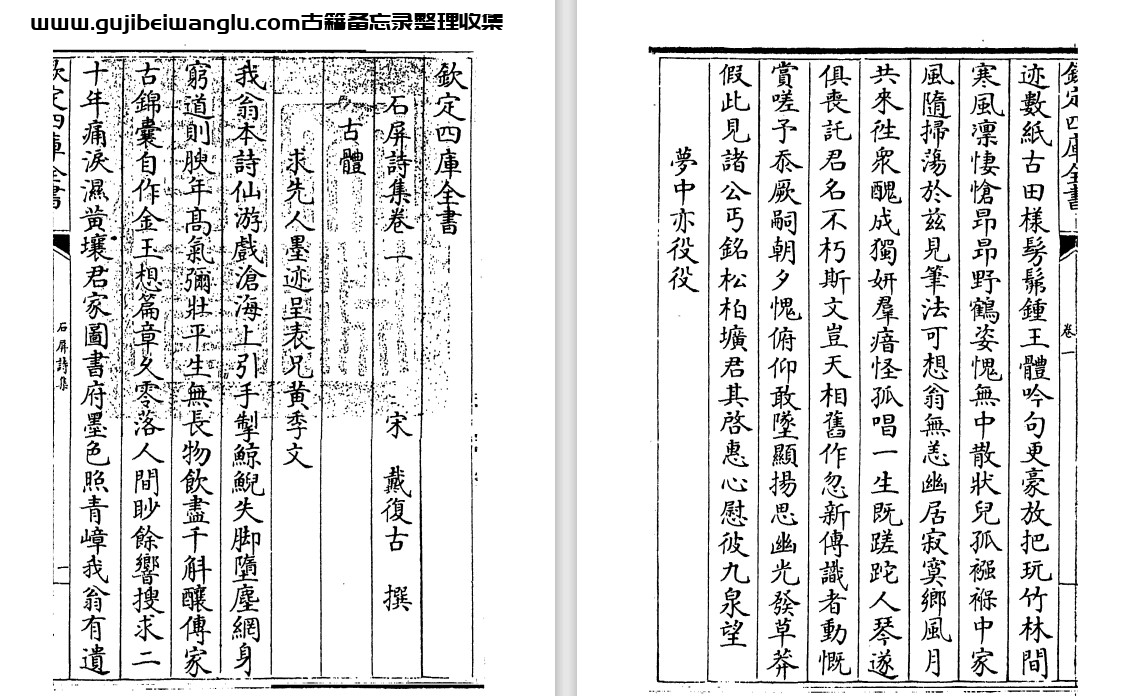 www.gujibeiwanglu.com古籍备忘录整理收集
欽定四庫全書
石屏詩集卷一 宋 戴復古 撰
古體
求先人墨迹呈表兄黄季文
我翁本詩仙游戲滄海上引手掣鯨鯢失脚墮塵網身
窮道則腴年髙氣彌壯平生無長物飲盡千斛釀傳家
古錦囊自作金玉想篇章乆零落人間眇餘響搜求二
十年痛淚濕黄壤君家圖書府墨色照青嶂我翁有遺
欽定四庫全書
石屏詩集
一
欽定四庫全書
卷一
迹數紙古田様髣髴鍾王體吟句更豪放把玩竹林間
寒風凛悽愴昻昻野鶴姿愧無中散狀兒孤襁褓中家
風隨掃蕩於兹見筆法可想翁無恙幽居寂寞鄉風月
共來徃衆醜成獨妍羣瘖怪孤唱一生既蹉跎人琴遂
俱喪託君名不朽斯文豈天相舊作忽新傳識者動慨
賞嗟予忝厥嗣朝夕愧俯仰敢墜顯揚思幽光發草莽
假此見諸公丐銘松柏壙君其啓惠心慰彼九泉望
夢中亦役役